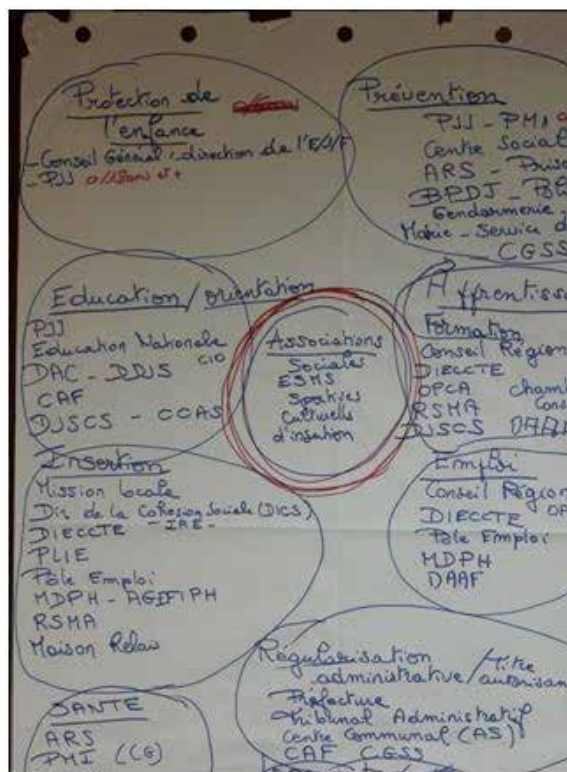 Protection de
l'enfance
- Conseil Général : direction de l'E/J/F
- PJJ
Prévention
PJJ - PMI
Centre Social
ARS -
BPDJ -
Gendarmerie -
Mairie - Service d
CGSS
Education / orientation
PJJ
Education Nationale
CIO
DAC - DDJS
CAF
DJSCS - CCAS
Associations
Sociales
ESMS
Sportives
Culturells
d'insertion
Apprentissa
Formation
Conseil Région
DIECCTE
OPCA Cham
RSMA Cons
DJSCS DAA
Insertion
Mission Locale
Dir. de la Cohésion Sociale (DICS)
DIECCTE - IAE -
PLIE
Pôle Emploi
MDPH - AGEFIPH
RSMA
Maison Relais
Emploi
Conseil Région
DIECCTE OP
Pôle Emploi
MDPH
DAAF
Régularisation
administrative / titre
autorisan
Préfecture
Tribunal Administratif
Centre Communal (AS)
CAF CGSS
SANTE
ARS
PMI (CG)